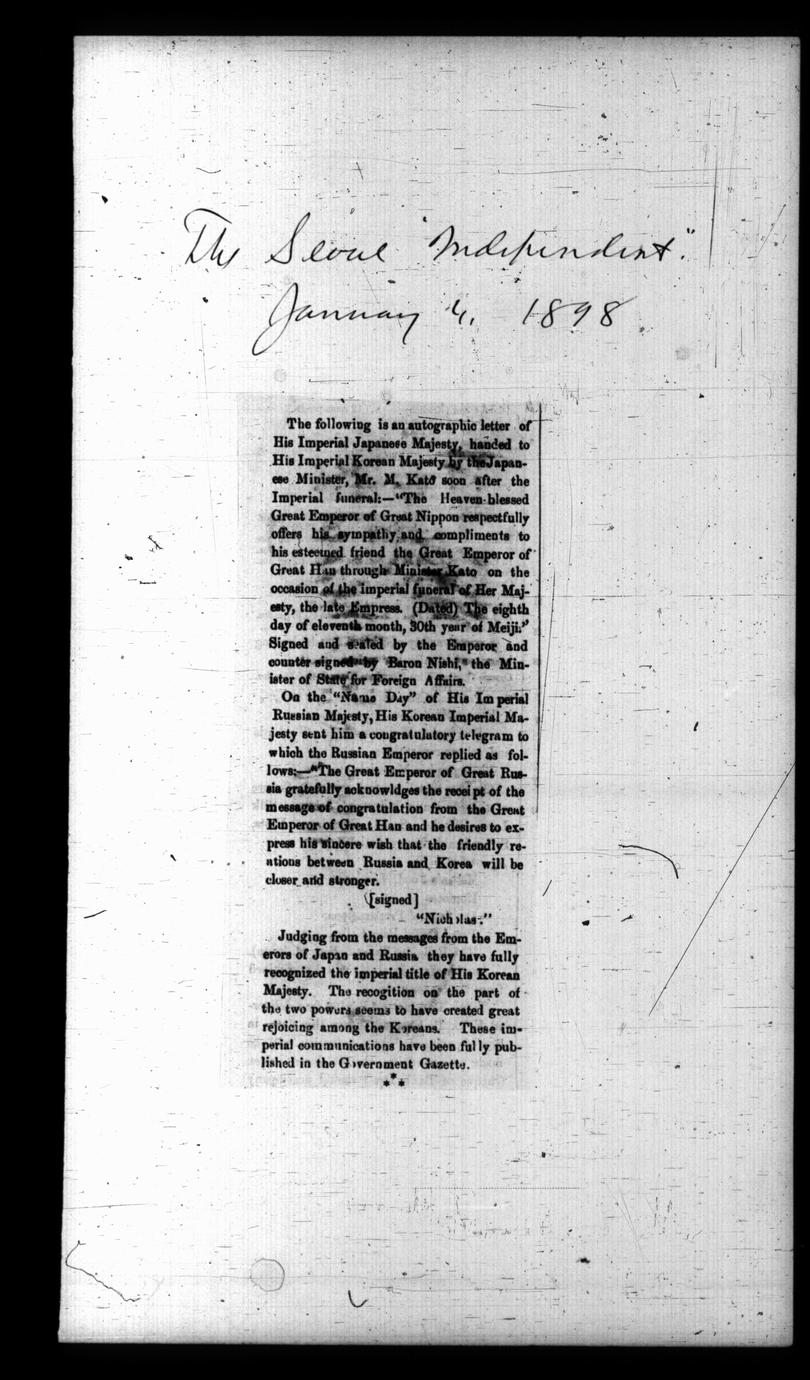 The Seoul "Independent."
January 4, 1898
The following is an autographic letter of
His Imperial Japanese Majesty, handed to
His Imperial Korean Majesty by the Japan-
ese Minister, Mr. M. Kato soon after the
Imperial funeral:—"The Heaven-blessed
Great Emperor of Great Nippon respectfully
offers his sympathy and compliments to
his esteemed friend the Great Emperor of
Great Han through Minister Kato on the
occasion of the imperial funeral of Her Maj-
esty, the late Empress. (Dated) The eighth
day of eleventh month, 30th year of Meiji."
Signed and sealed by the Emperor and
counter signed by Baron Nishi, the Min-
ister of State for Foreign Affairs.
On the "Name Day" of His Imperial
Russian Majesty, His Korean Imperial Ma-
jesty sent him a congratulatory telegram to
which the Russian Emperor replied as fol-
lows:—"The Great Emperor of Great Rus-
sia gratefully acknowldges the receipt of the
message of congratulation from the Great
Emperor of Great Han and he desires to ex-
press his sincere wish that the friendly re-
ations between Russia and Korea will be
closer and stronger.
[signed]
"Nicholas."
Judging from the messages from the Em-
erors of Japan and Russia they have fully
recognized the imperial title of His Korean
Majesty. The recogition on the part of
the two powers seems to have created great
rejoicing among the Koreans. These im-
perial communications have been fully pub-
lished in the Government Gazette.